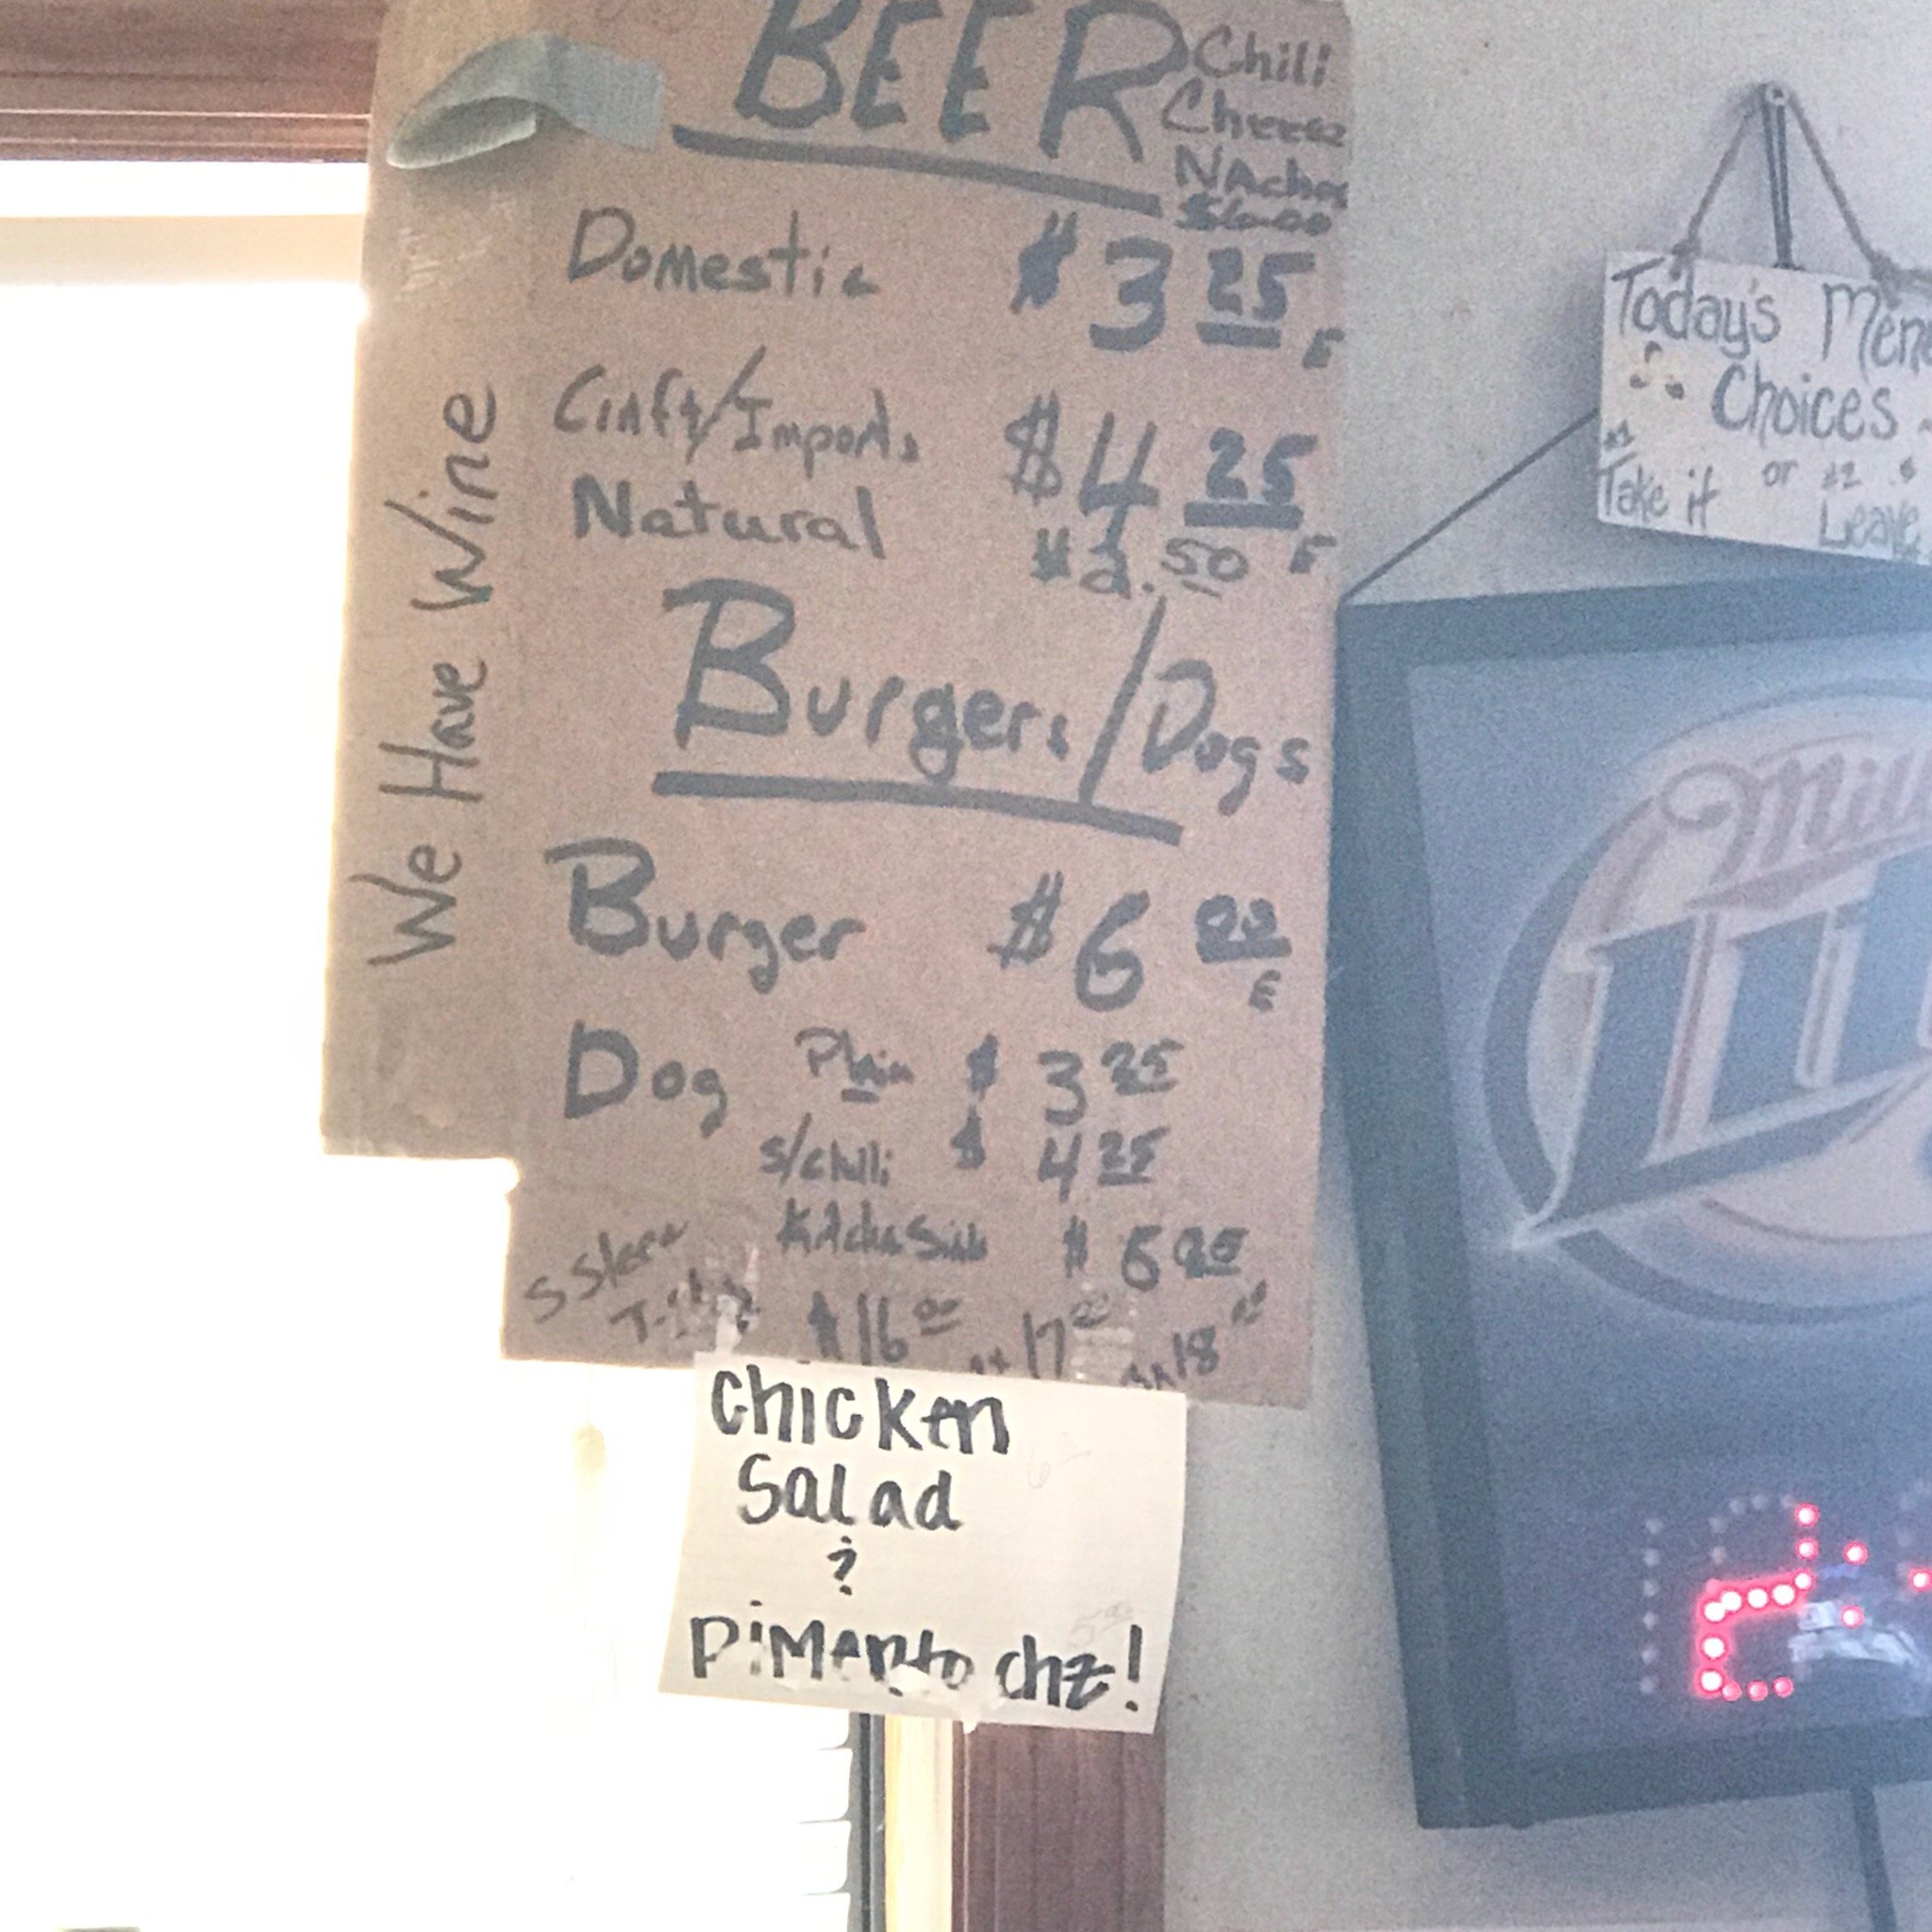 BEER
Chili
Cheese
Nachos
$6.00
Domestic $3 25
Craft/Imports $4 25
Natural $2.50
We Have Wine
Burgers/Dogs
Burger $6
Dog Plain $3 25
s/chilli $4 25
$16 00 17 00 18 00
chicken
Salad
&
Pimento chz!
Today's Menu
Choices
#1 or #2
Take it Leave